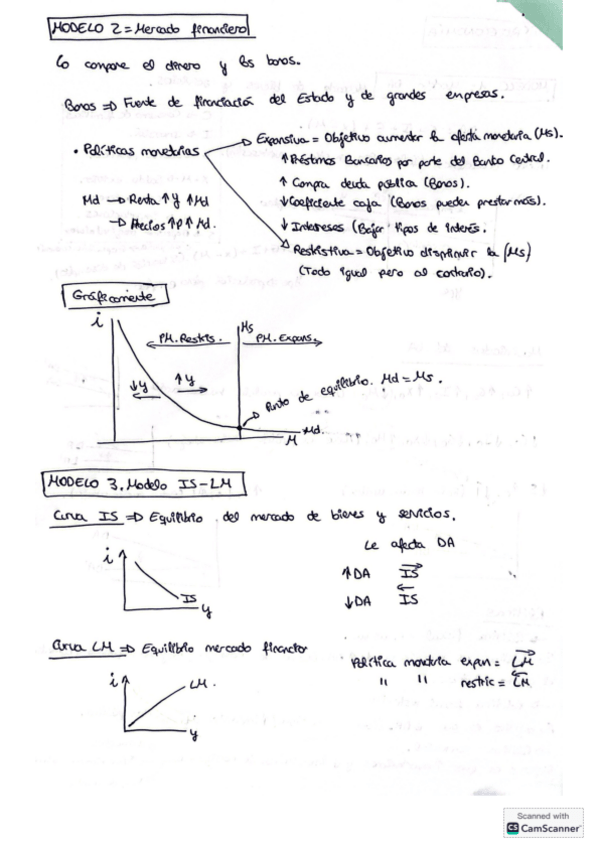 MODELO 2 = Mercado financiero
Lo compone el dinero y los bonos.
Bonos => Fuente de financiación del Estado y de grandes empresas.
• Políticas monetarias
Expansiva = Objetivo aumentar la oferta monetaria (Ms).
↑ Préstamos Bancarios por parte del Banco Central.
↑ Compra deuda pública (Bonos).
↓ Coeficiente caja (Bonos pueden prestar más).
↓ Intereses (Bajar tipos de interés.
Md → Renta ↑ y ↑ Md
→ Precios ↑ P ↑ Md.
Restrictiva = Objetivo disminuir la (Ms)
(Todo igual pero al contrario).
Gráficamente
i
Ms
PM. Restris.
PM. Expans.
↓y
↑y
Punto de equilibrio. Md = Ms.
Md.
M
MODELO 3. Modelo IS-LM
Curva IS => Equilibrio del mercado de bienes y servicios.
Le afecta DA
↑ DA IS →
↓ DA IS ←
i
IS
y
Curva LM => Equilibrio mercado financier
Política monetaria expan = LM →
" " restric = LM ←
i
LM.
y
Scanned with
CS CamScanner